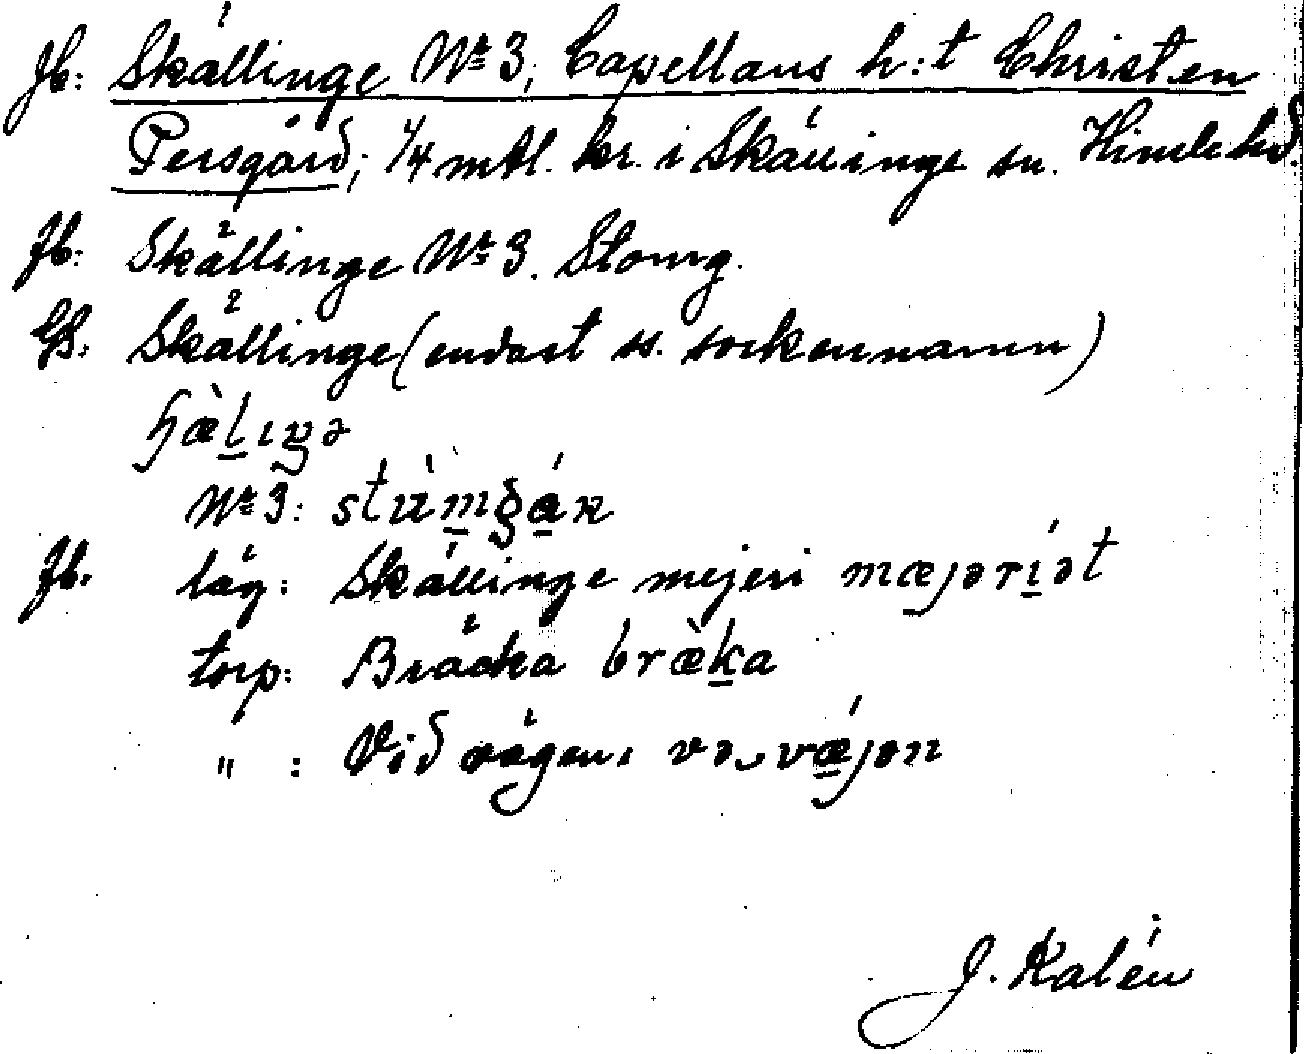 Jb: Skällinge Nr 3, Capellans h:t Christen
Persgård; 1/4 mtl. kr. i Skällinge sn. Himle hd.
Jb: Skällinge Nr 3. Stomg.
GS. Skällinge (endast ss. sockennamn)
ɧæ̀lıŋə
Nr 3: stúmgár
Jb. läg: Skällinge mejeri mæjəríət
torp: Bräcka bræ̀ka
" : Vid vägen, və vǽjən
J. Kalén